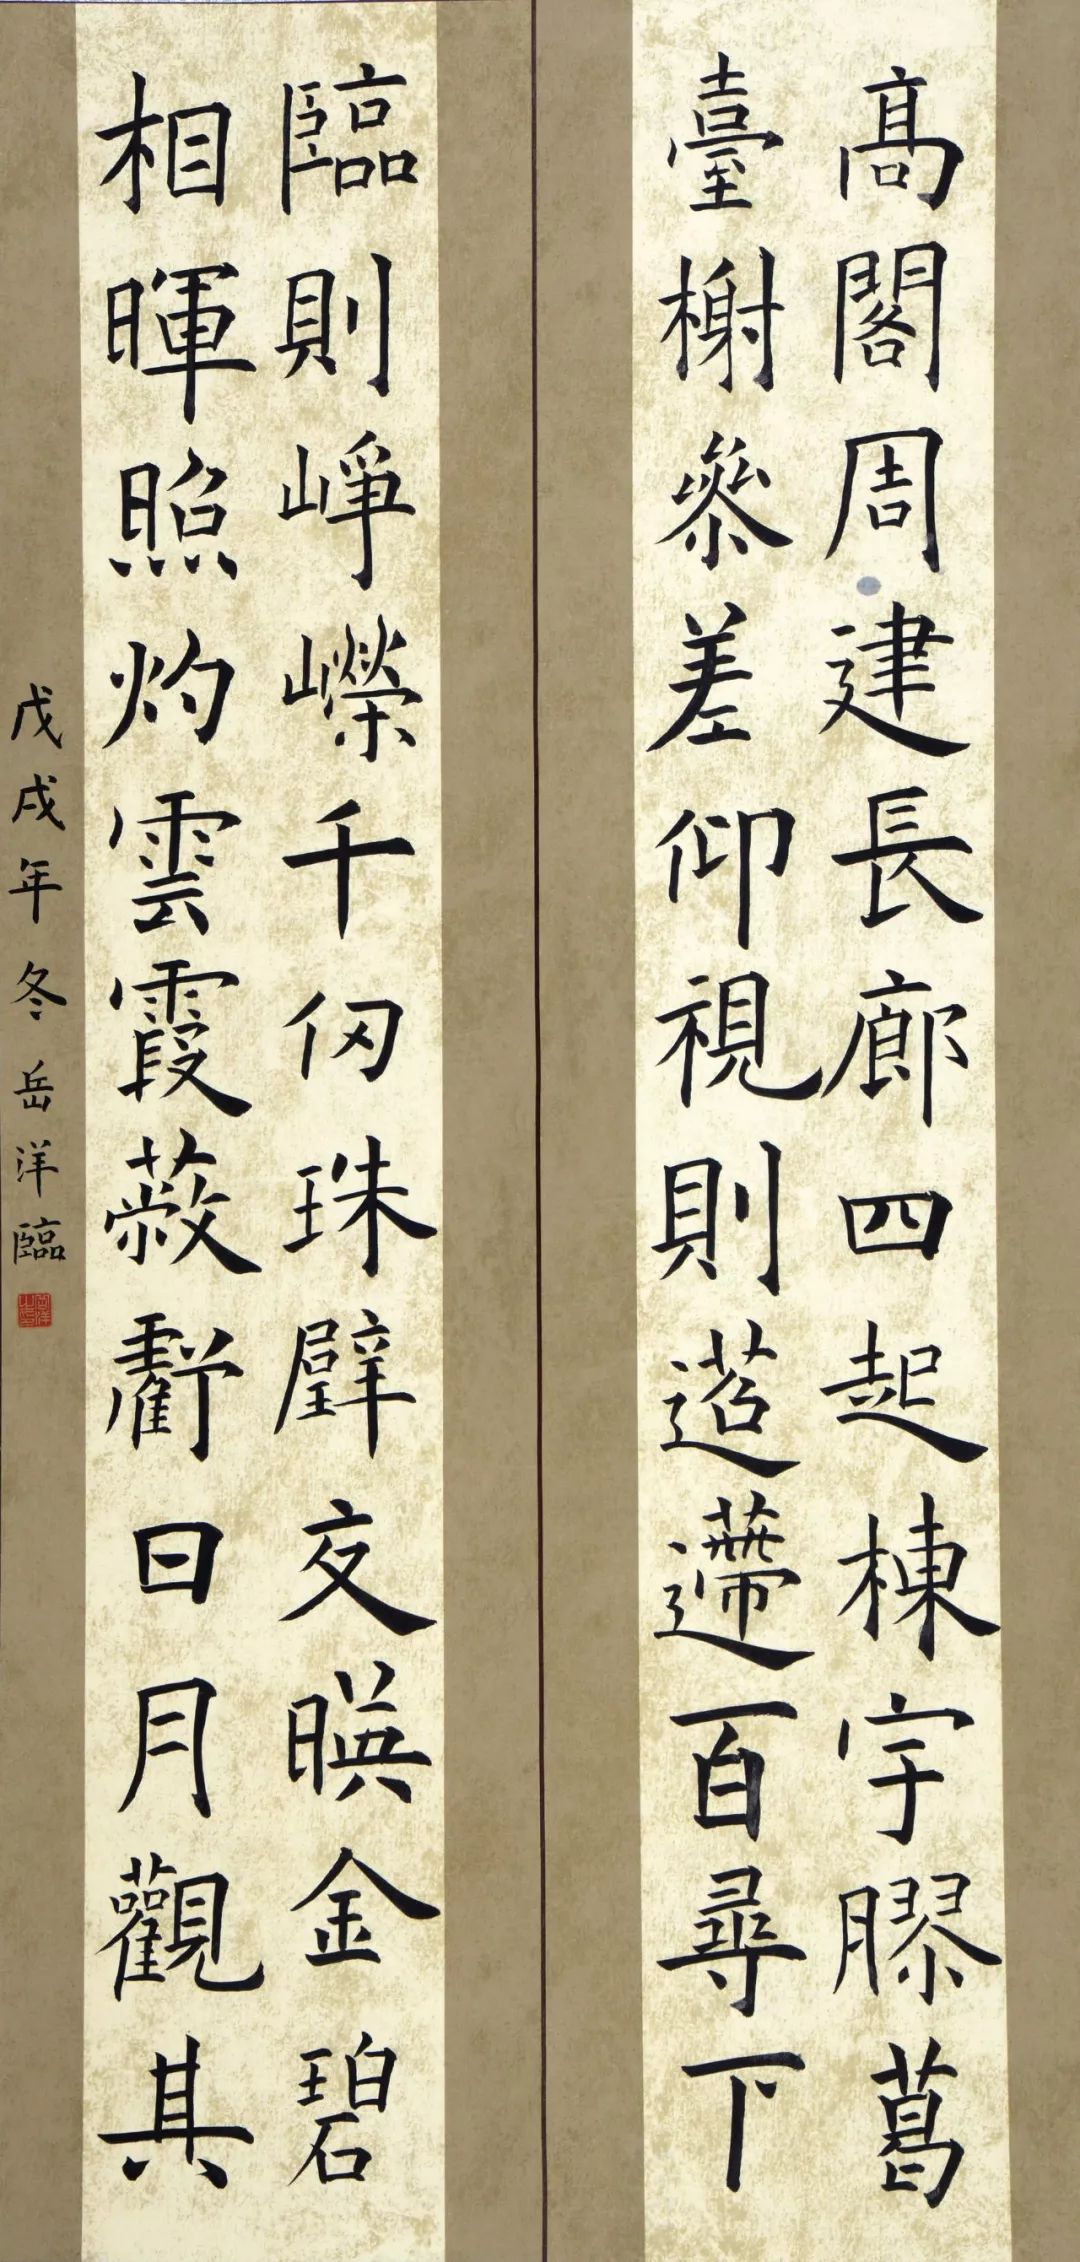 高閣周建長廊四起棟宇膠葛
臺榭參差仰視則迢遰百尋下
臨則崢嶸千仞珠璧交暎金碧
相暉照灼雲霞蔽虧日月觀其
戊戌年冬岳洋臨